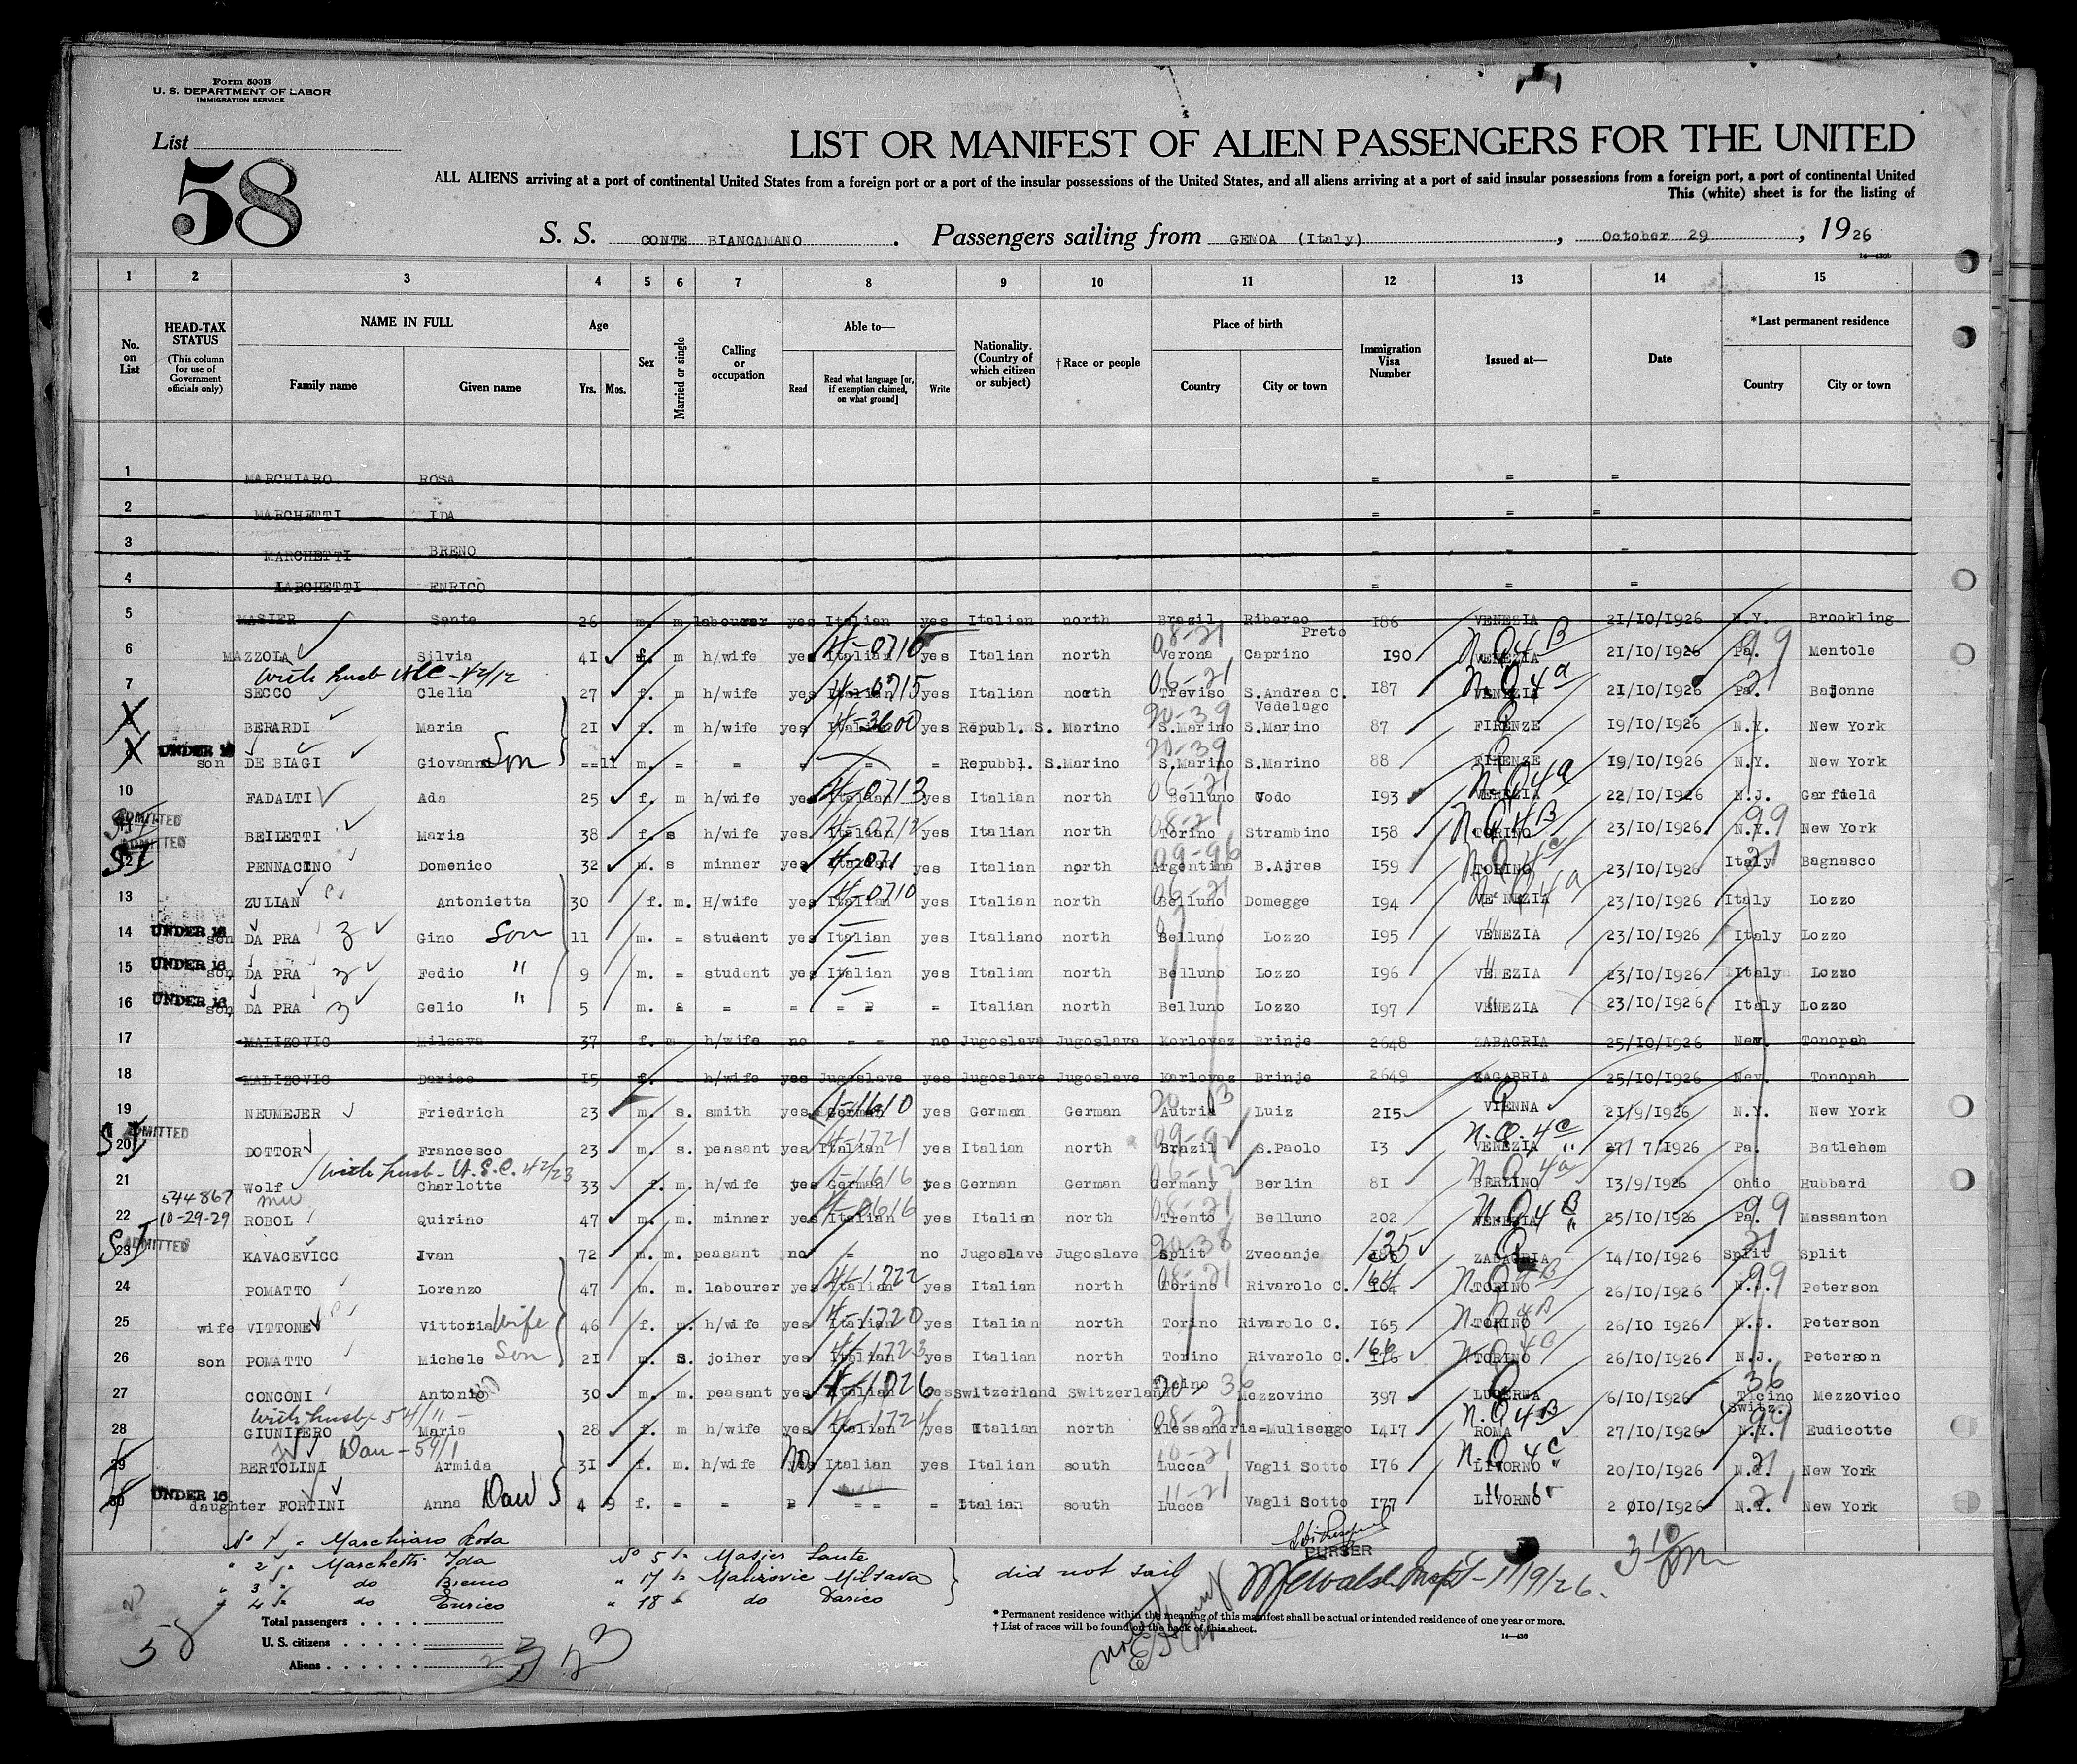 Form 500B
U. S. DEPARTMENT OF LABOR
IMMIGRATION SERVICE
List
58
LIST OR MANIFEST OF ALIEN PASSENGERS FOR THE UNITED
ALL ALIENS arriving at a port of continental United States from a foreign port or a port of the insular possessions of the United States, and all aliens arriving at a port of said insular possessions from a foreign port, a port of continental United
This (white) sheet is for the listing of
S. S. CONTE BIANCAMANO . Passengers sailing from GENOA (Italy) , October 29 , 1926
1 2 3 4 5 6 7 8 9 10 11 12 13 14 15
No. on List
HEAD-TAX STATUS
(This column for use of Government officials only)
NAME IN FULL
Family name Given name
Age
Yrs. Mos.
Sex
Married or single
Calling or occupation
Able to—
Read
Read what language [or, if exemption claimed, on what ground]
Write
Nationality. (Country of which citizen or subject)
†Race or people
Place of birth
Country City or town
Immigration Visa Number
Issued at—
Date
*Last permanent residence
Country City or town
1 MARCHIARO ROSA = = =
2 MARCHETTI IDA = = =
3 MARCHETTI BRENO - - -
4 MARCHETTI ENRICO = = =
5 MASIER Sante 26 m. m labourer yes Italian yes Italian north Brazil Riberao Preto 186 VENEZIA 21/10/1926 N.Y. Brookling
6 MAZZOLA Silvia 41 f. m h/wife yes Italian 4-0716 yes Italian north Verona 08-21 Caprino 190 VENEZIA N.Q4B 21/10/1926 Pa. 99 Mentole
With husb
7 SECCO Clelia 27 f. m h/wife yes Italian 4-0715 yes Italian north Treviso 06-21 S.Andrea C. Vedelago 187 VENEZIA N.Q4a 21/10/1926 Pa. 21 Bajonne
8 BERARDI Maria 21 f. m h/wife yes Italian 4-3600 yes Republ. S. Marino S.Marino 90-39 S.Marino 87 FIRENZE 19/10/1926 N.Y. New York
9 UNDER 16 son DE BIAGI Giovanni Son 11 m. = = = = Repubbl. S.Marino S.Marino 20-39 S.Marino 88 FIRENZE 19/10/1926 N.Y. New York
10 FADALTI Ada 25 f. m h/wife yes Italian 4-0713 yes Italian north Belluno 06-21 Vodo 193 VENEZIA N.Q4a 22/10/1926 N.J. Garfield
ADMITTED
11 BEILETTI Maria 38 f. s h/wife yes Italian 4-0712 yes Italian north Torino 08-21 Strambino 158 TORINO N.Q4B 23/10/1926 N.Y. 99 New York
SI ADMITTED
12 PENNACINO Domenico 32 m. s minner yes Italian yes Italian north Argentina 09-96 B.Ajres 159 TORINO 23/10/1926 Italy 21 Bagnasco
13 ZULIAN Antonietta 30 f. m. H/wife yes Italian 4-0710 yes Italian north Belluno 06-21 Domegge 194 VENEZIA N.Q4a 23/10/1926 Italy Lozzo
14 UNDER 16 son DA PRA 3 Gino Son 11 m. = student yes Italian yes Italiano north Belluno Lozzo 195 VENEZIA " 23/10/1926 Italy Lozzo
15 UNDER 16 son, DA PRA 3 Fedio " 9 m. = student yes Italian yes Italian north Belluno Lozzo 196 VENEZIA " 23/10/1926 Italy Lozzo
16 UNDER 16 son, DA PRA 3 Gelio " 5 m. = = = = = Italian north Belluno Lozzo 197 VENEZIA " 23/10/1926 Italy Lozzo
17 MALIZOVIC Milsava 37 f. m h/wife no - - no Jugoslava Jugoslava Korlovaz Brinje 2648 ZABAGRIA 25/10/1926 Nev. Tonopah
18 MALIZOVIC Darico 15 f. - h/wife yes Jugoslave yes Jugoslave Jugoslave Karlovaz Brinje 2649 ZAGABRIA 25/10/1926 Nev. Tonopah
19 NEUMEJER Friedrich 23 m. s. smith yes German yes German German Autria Luiz 215 VIENNA Q 21/9/1926 N.Y. New York
SI ADMITTED
20 DOTTOR Francesco 23 m. s. peasant yes Italian 4-1721 yes Italian north Brazil 09-92 S.Paolo 13 VENEZIA N.Q.4c " 27/ 7/1926 Pa. Batlehem
With husb - U.S.C. 42/23
21 Wolf Charlotte 33 f. m. h/wife yes German yes German German Germany Berlin 81 BERLINO N.Q4a 13/9/1926 Ohio Hubbard
544867
10-29-29
22 ROBOL Quirino 47 m. m. minner yes Italian 4-0616 yes Italian north Trento 08-21 Belluno 202 VENEZIA N.Q4B " 25/10/1926 Pa. 99 Massanton
SI ADMITTED
23 KAVACEVICC Ivan 72 m. m. peasant no = no Jugoslave Jugoslave Split 20-38 Zvecanje 135 ZABAGRIA Q 14/10/1926 Split 21 Split
24 POMATTO Lorenzo 47 m. m. labourer yes Italian 4-1722 yes Italian north Torino 08-21 Rivarolo C. 164 TORINO N.Q4B 26/10/1926 N.J. 99 Peterson
25 wife VITTONE Vittoria Wife 46 f. m. h/wife yes Italian 4-1720 yes Italian north Torino Rivarolo C. 165 TORINO N.Q4B 26/10 1926 N.J. Peterson
26 son POMATTO Michele Son 21 m. S. joiher yes Italian 4-1723 yes Italian north Torino Rivarolo C. 166 TORINO 26/10/1926 N.J. Peterson
27 CONCONI Antonio 30 m. m. peasant yes Italian 4-1026 yes Switzerland Switzerland Ticino 36 Mezzovino 397 LUCERNA Q 6/10/1926 Ticino (Switz.) 36 Mezzovico
With husb - 54/11 -
28 GIUNIPERO Maria 28 f. m h/wife yes Italian 4-1724 yes Italian north Alessandria=Mulisengo 08-21 1417 ROMA N.Q4B 27/10/1926 N.Y. 99 Eudicotte
Dau - 59/1
29 BERTOLINI Armida 31 f. m. h/wife No yes Italian yes Italian south Lucca 10-21 Vagli Sotto 176 LIVORNO N.Q.4c " 20/10/1926 N.Y. 21 New York
30 UNDER 16 daughter FORTINI Anna Daus 4 9 f. = = = = = = Italian south Lucca 11-21 Vagli Sotto 177 LIVORNO 2 010/1926 N.Y. 21 New York
No 1 = Marchiaro Rosa
" 2 = Marchetti Ida
" 3 = do Breno
" 4 = do Enrico
No 5 = Masier Sante
" 17 = Malizovic Milsava
" 18 = do Darico
did not sail
PURSER
Inspt - 11/9/26.
3 10 pm
Total passengers
U. S. citizens
Aliens
58
23
* Permanent residence within the meaning of this manifest shall be actual or intended residence of one year or more.
† List of races will be found on the back of this sheet.
14—430